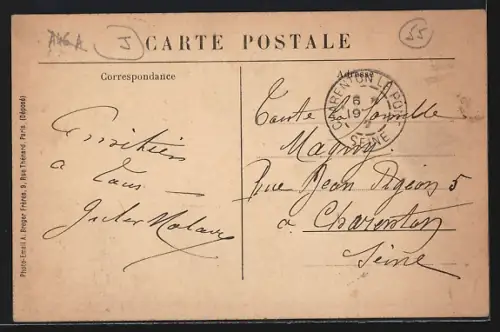 J
55
CARTE POSTALE
Correspondance
Adresse
CHARENTON LE PONT
6
19
SEINE
Toute la famille
Magny
Rue Jean Pigeon 5
à Charenton
Seine
Amitiés
à tous
Jules
Photo-Email A. Breger Frères, 9, Rue Thénard, Paris. (Déposé)